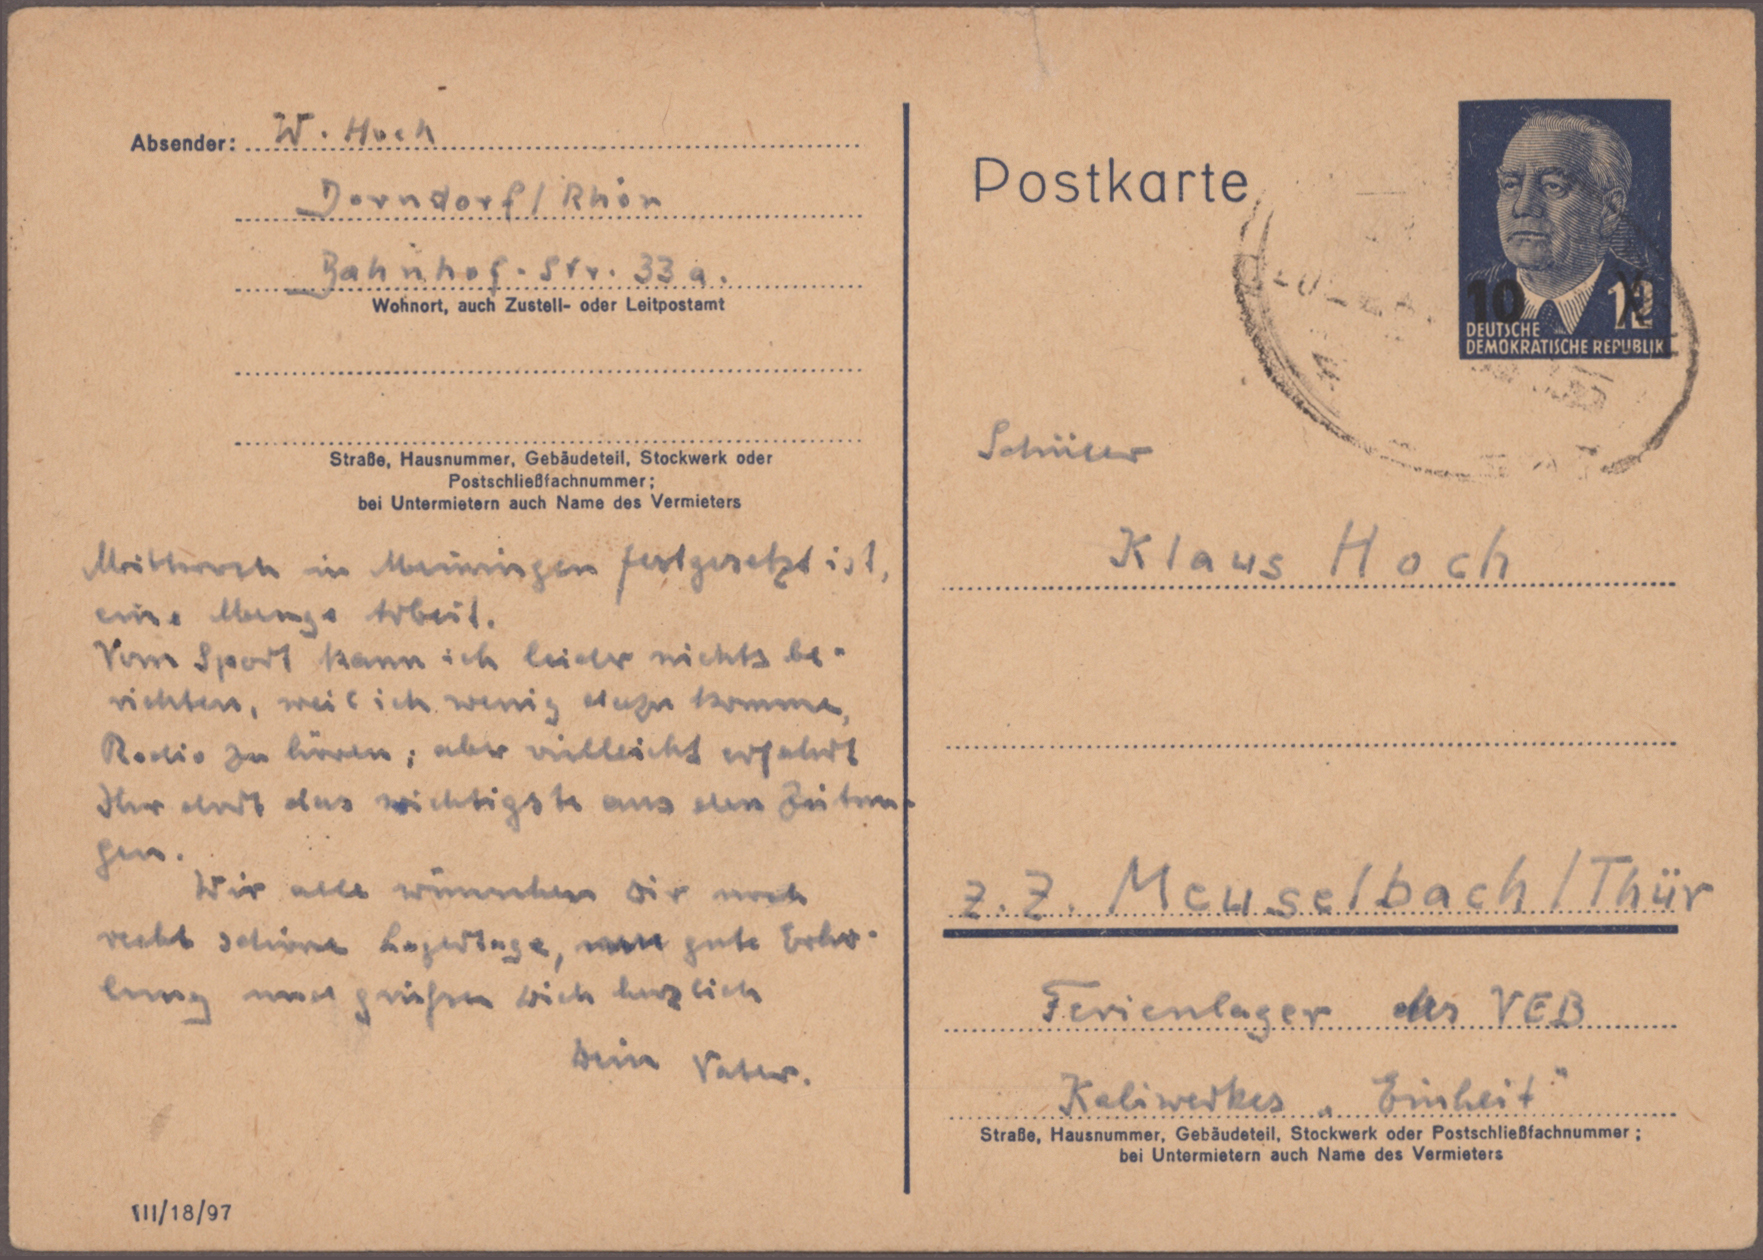 Absender: W. Hoch
Dorndorf / Rhön
Bahnhof-Str. 33 a.
Wohnort, auch Zustell- oder Leitpostamt
Straße, Hausnummer, Gebäudeteil, Stockwerk oder
Postschließfachnummer;
bei Untermietern auch Name des Vermieters
Mittwoch in Meiningen festgesetzt ist,
eine Menge Arbeit.
Vom Sport kann ich leider nichts be-
richten, weil ich wenig dazu komme,
Radio zu hören; aber vielleicht erfahrt
Ihr dort das wichtigste aus den Zeitun-
gen.
Wir alle wünschen Dir noch
recht schöne Lagertage, gute Erho-
lung und grüßen Dich herzlich
Dein Vater.
III/18/97
Postkarte
10 12
DEUTSCHE
DEMOKRATISCHE REPUBLIK
Schüler
Klaus Hoch
z. Z. Meuselbach / Thür
Ferienlager des VEB
Kaliwerkes „Einheit"
Straße, Hausnummer, Gebäudeteil, Stockwerk oder Postschließfachnummer;
bei Untermietern auch Name des Vermieters